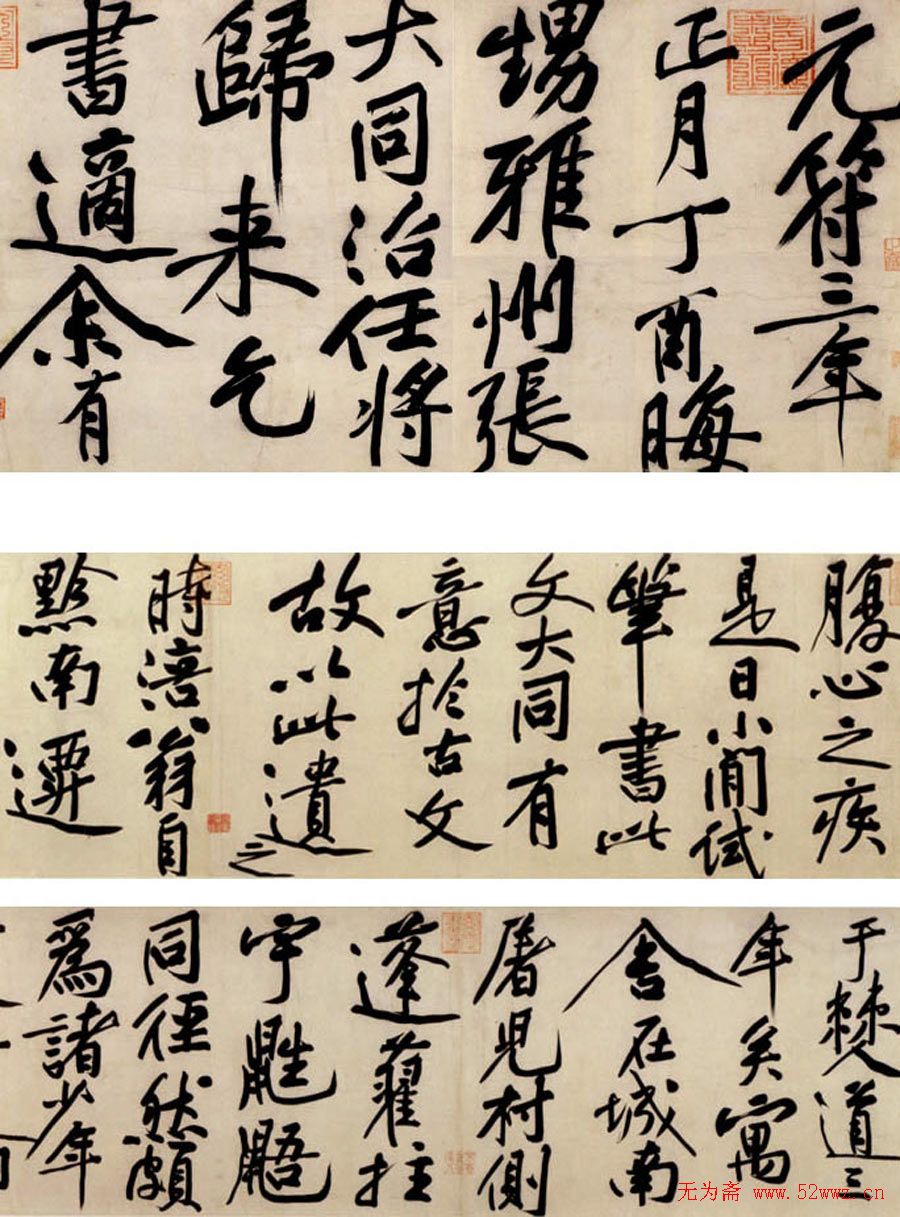 元符三年
正月丁酉晦
甥雅州張
大同治任將
歸来乞
書適余有
腹心之疾
是日小閒試
筆書此
文大同有
意於古文
故以此遺之
時涪翁自
黔南遷
于僰道三
年矣寓
舍在城南
屠児村側
蓬藋拄
宇鼪鼯
同徑然頗
爲諸少年
无为斋 www.52wwz.cn